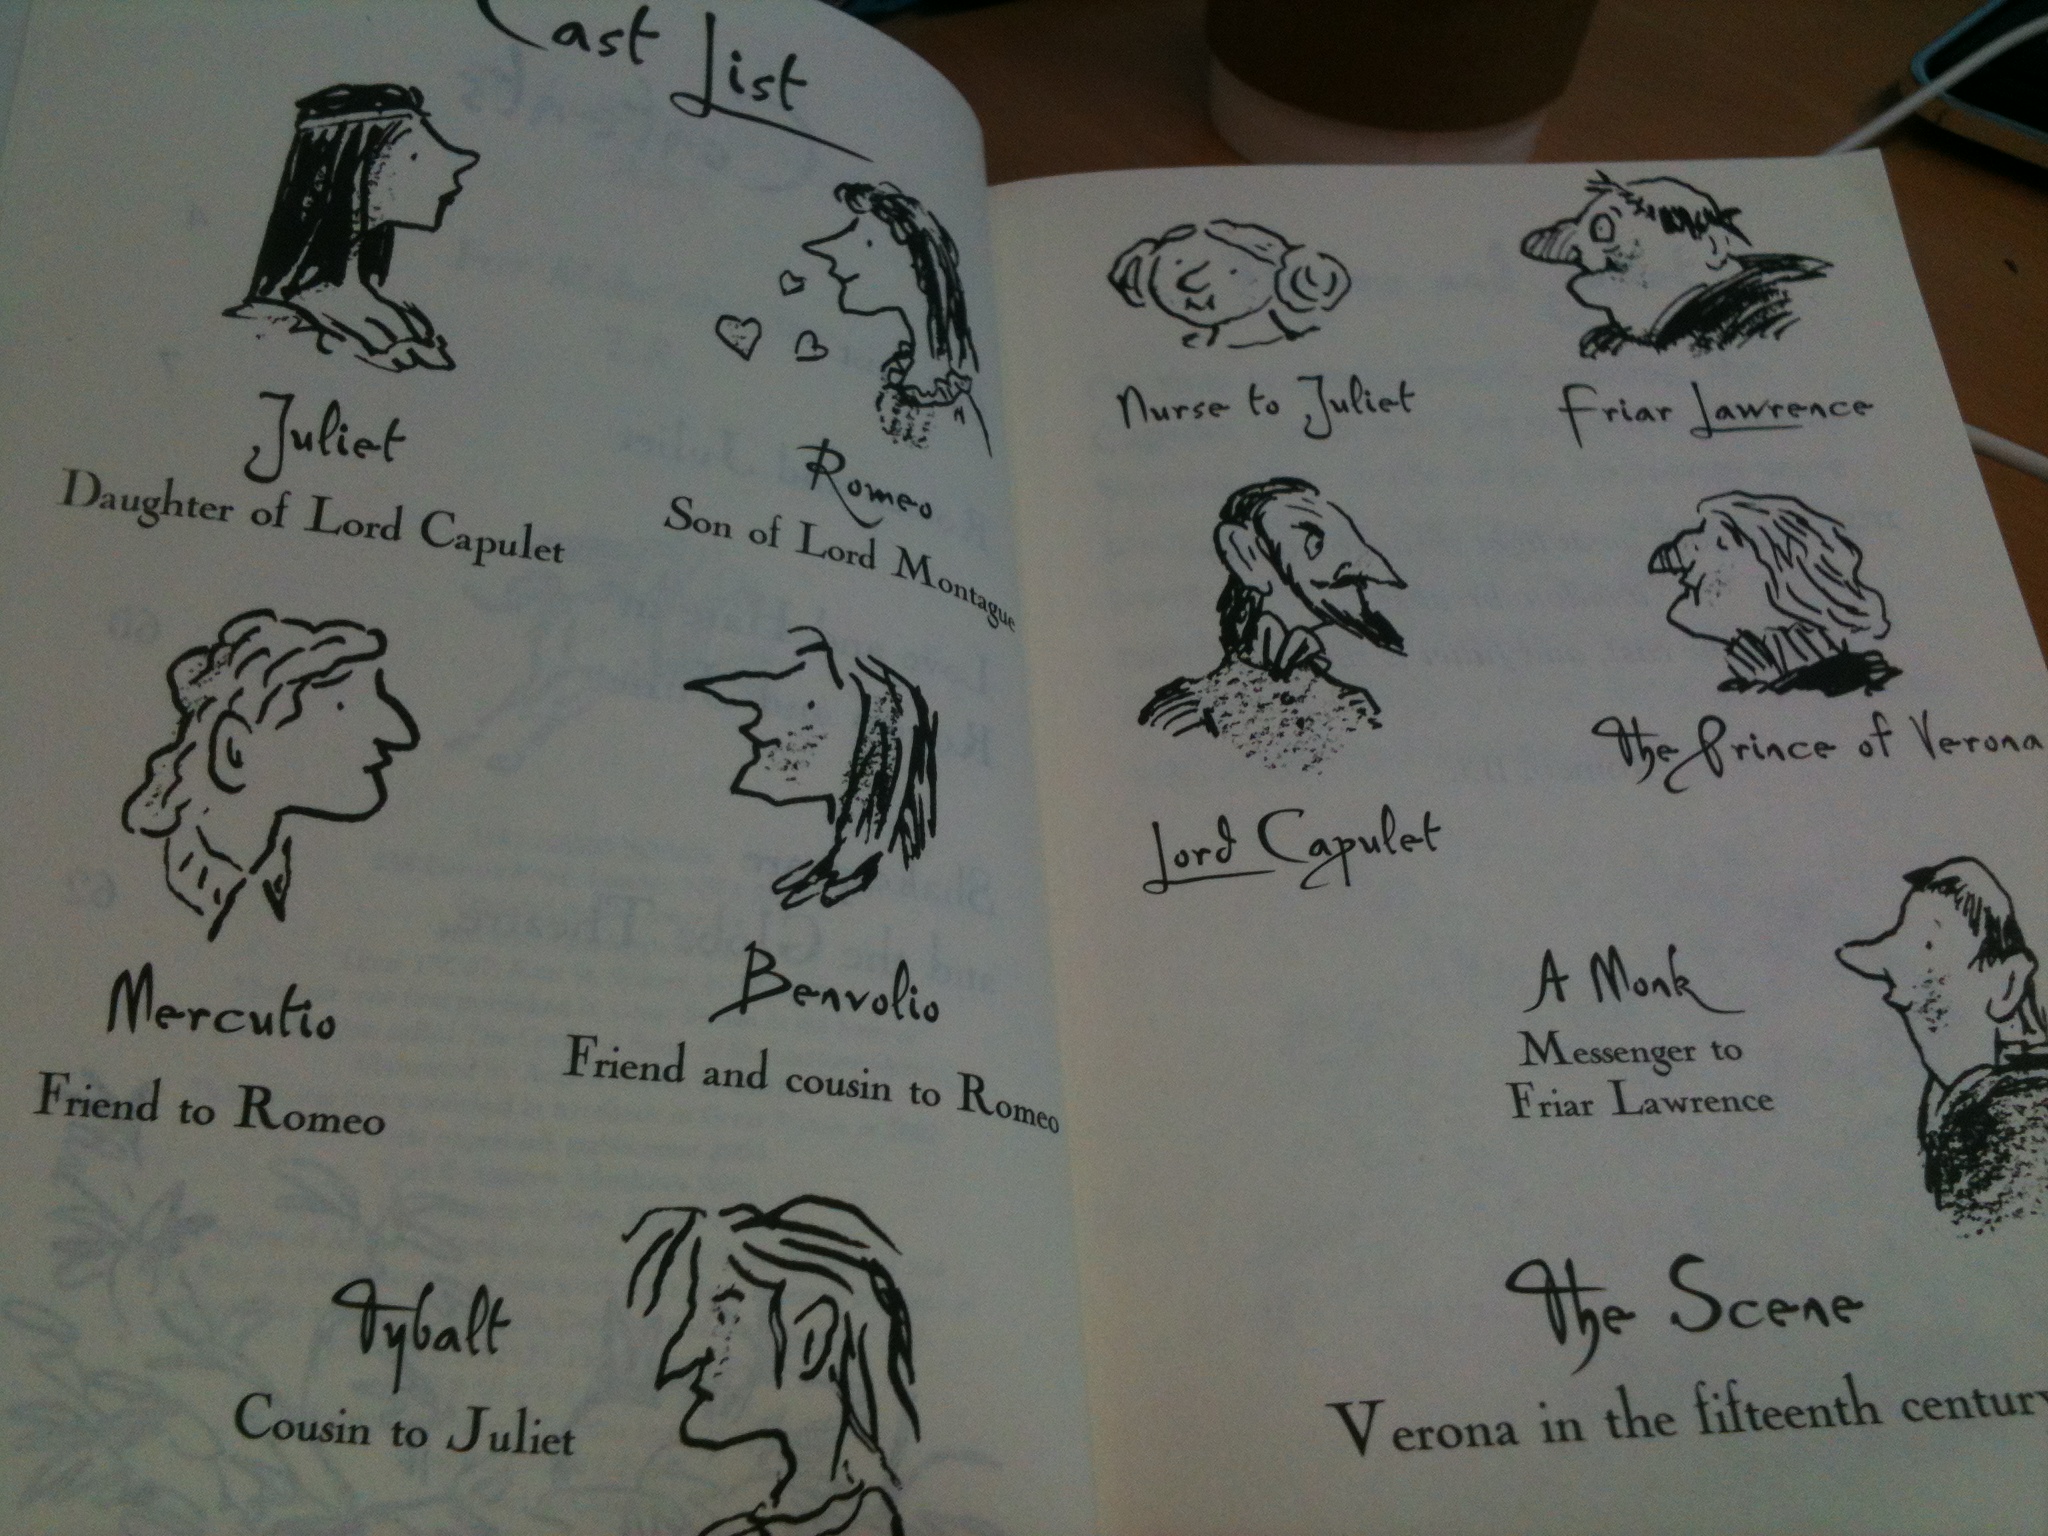 Cast List
Juliet
Daughter of Lord Capulet
Romeo
Son of Lord Montague
Mercutio
Friend to Romeo
Benvolio
Friend and cousin to Romeo
Tybalt
Cousin to Juliet
Nurse to Juliet
Friar Lawrence
Lord Capulet
The Prince of Verona
A Monk
Messenger to
Friar Lawrence
The Scene
Verona in the fifteenth century